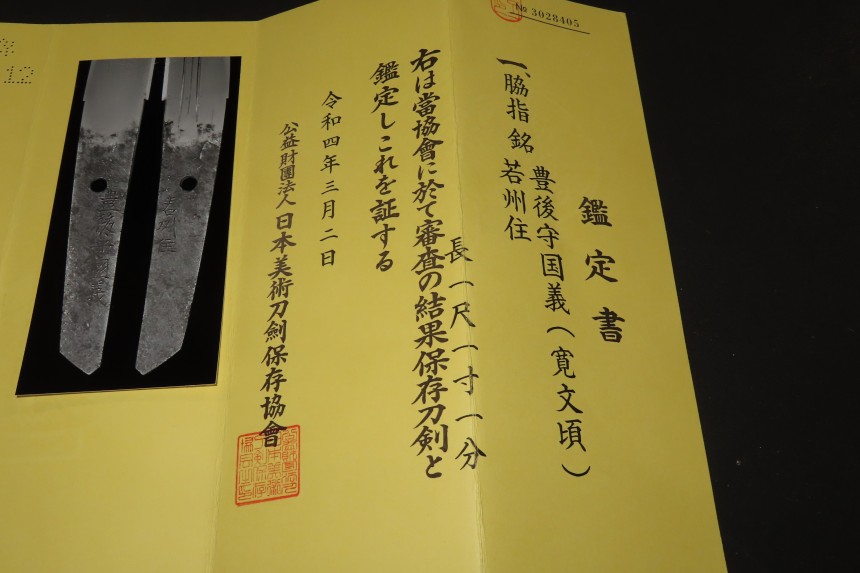 № 3028405
鑑定書
一、脇指 銘 豊後守国義(寛文頃)
若州住
長一尺一寸一分
右は當協會に於て審査の結果保存刀剣と
鑑定しこれを証する
令和四年三月二日
公益財團法人 日本美術刀劍保存協會
豊後守国義
若州住
12